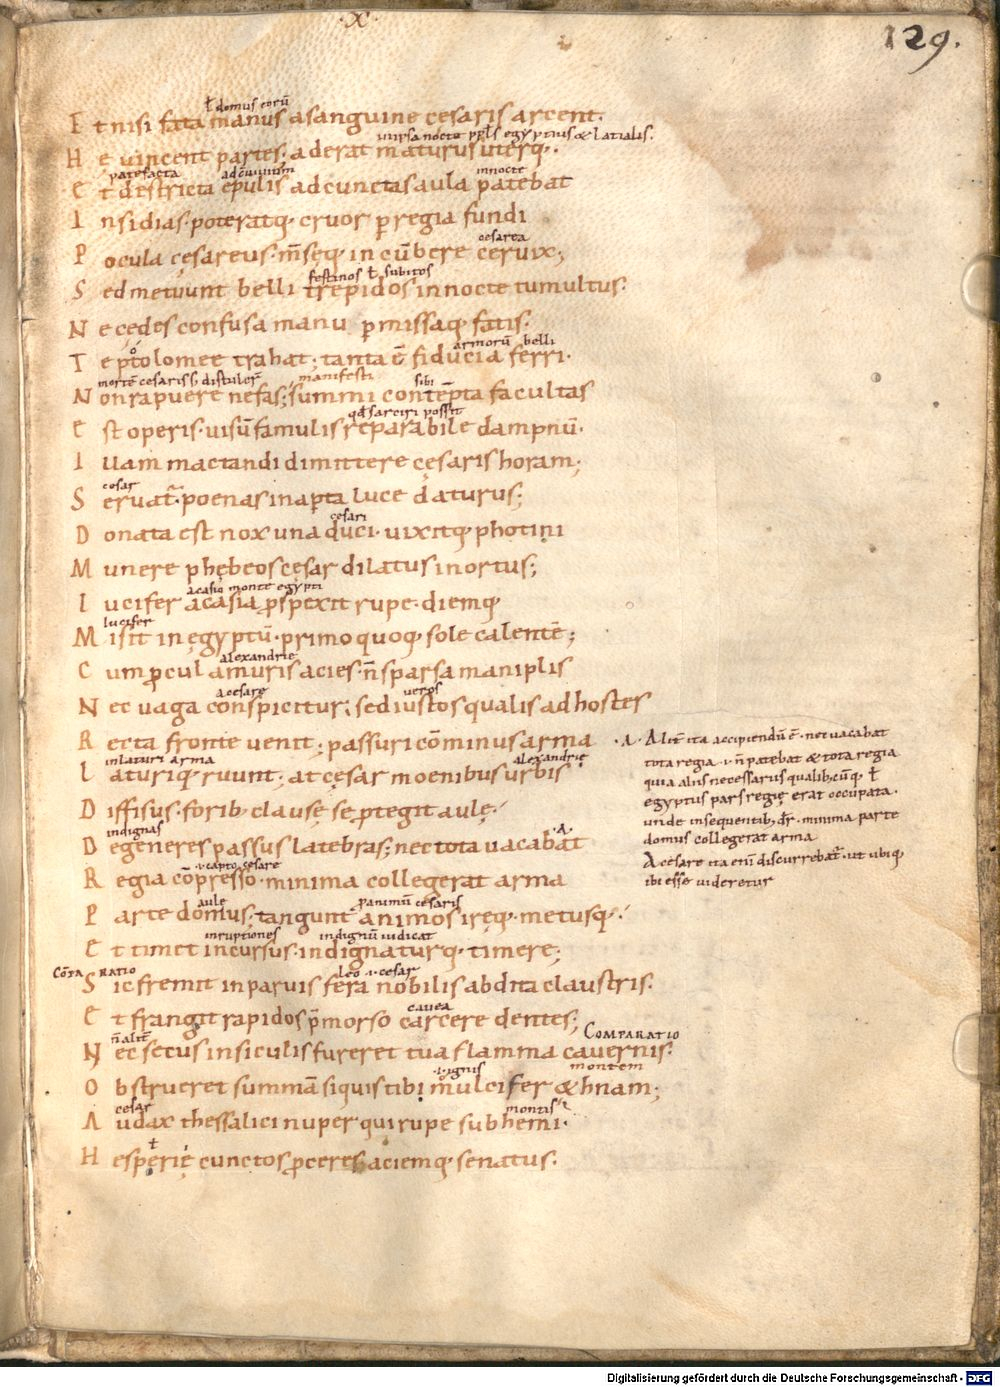 .x.
129.
ł domus eorũ
E t nisi fata manus a sanguine cesaris arcent.
uersa nocte ppl̃s egyptius & latialis.
H e uincent partes; aderat maturus uterq;.
patefacta ad conuiuium in nocte
E t destricta epulis ad cunctas aula patebat
I nsidias. poteratq; cruor p regia fundi
cesarea
P ocula cęsareus. m̃seq; incũbere ceruix;
festinos ł subitos
S ed metuunt belli trepidos in nocte tumultus.
N e cędes confusa manu pmissaq; fatis.
armorũ belli
T e ptolomee trahat; tanta ẽ fiducia ferri.
mortẽ cesaris s; distulert̃ manifesti sibi
N on rapuere nefas; summi contẽpta facultas
qd̃ sarciri possit
E st operis. uisũ famulis reparabile dampnũ.
I llam mactandi dimittere cęsaris horam;
cesar
S eruat̃. poenas in apta luce daturus;
cesari
D onata est nox una duci. uixitq; photini
M unere phębeos cęsar dilatus in ortus;
a casio monte egypti
L ucifer a casia pspexit rupe. diemq;
lucifer
M isit in ęgyptũ. primo quoq; sole calentẽ;
alexandrie
C um pcul a muris acies. ñ sparsa maniplis
a cesare ueros
N ec uaga conspicitur; sed iustos qualis ad hostes
R ecta fronte uenit; passuri cõminus arma
inlaturi arma alexandrię
L aturiq; ruunt; at cęsar moenibus urbis
D iffisus. forib; clausę se ptegit aulę.
indignas .A.
D egeneres passus latebras; nec tota uacabat
.i. capto cesare
R egia cõpresso. minima collegerat arma
aulę p animũ cesaris
P arte domus; tangunt animos iręq; metusq;.
inruptiones indignũ iudicat
E t timet incursus. indignaturq; timere;
CÕPARATIO leo .i. cesar
S ic fremit in paruis fera nobilis abdita claustris.
cauea
E t frangit rapidos p̃morso carcere dentes;
ñ alit̃ COMPARATIO
N ec secus in siculis fureret tua flamma cauernis.
.i. ignis montem
O bstrueret summã siquis tibi mulcifer &hnam;
cesar montis
A udax thessalici nuper qui rupe sub hemi.
H esperię cunctos pceres aciemq; senatus.
.A. Alit̃ ita accipiendũ ẽ. nec uacabat
tota regia .i. ñ patebat & tota regia
quia aliis necessariis qualib; cũq; ł
egyptus pars regię erat occupata.
unde in sequentib; dr̃. minima parte
domus collegerat arma
A cesare ita enĩ discurrebat̃. ut ubiq;
ibi esse uideretur
Digitalisierung gefördert durch die Deutsche Forschungsgemeinschaft - DFG